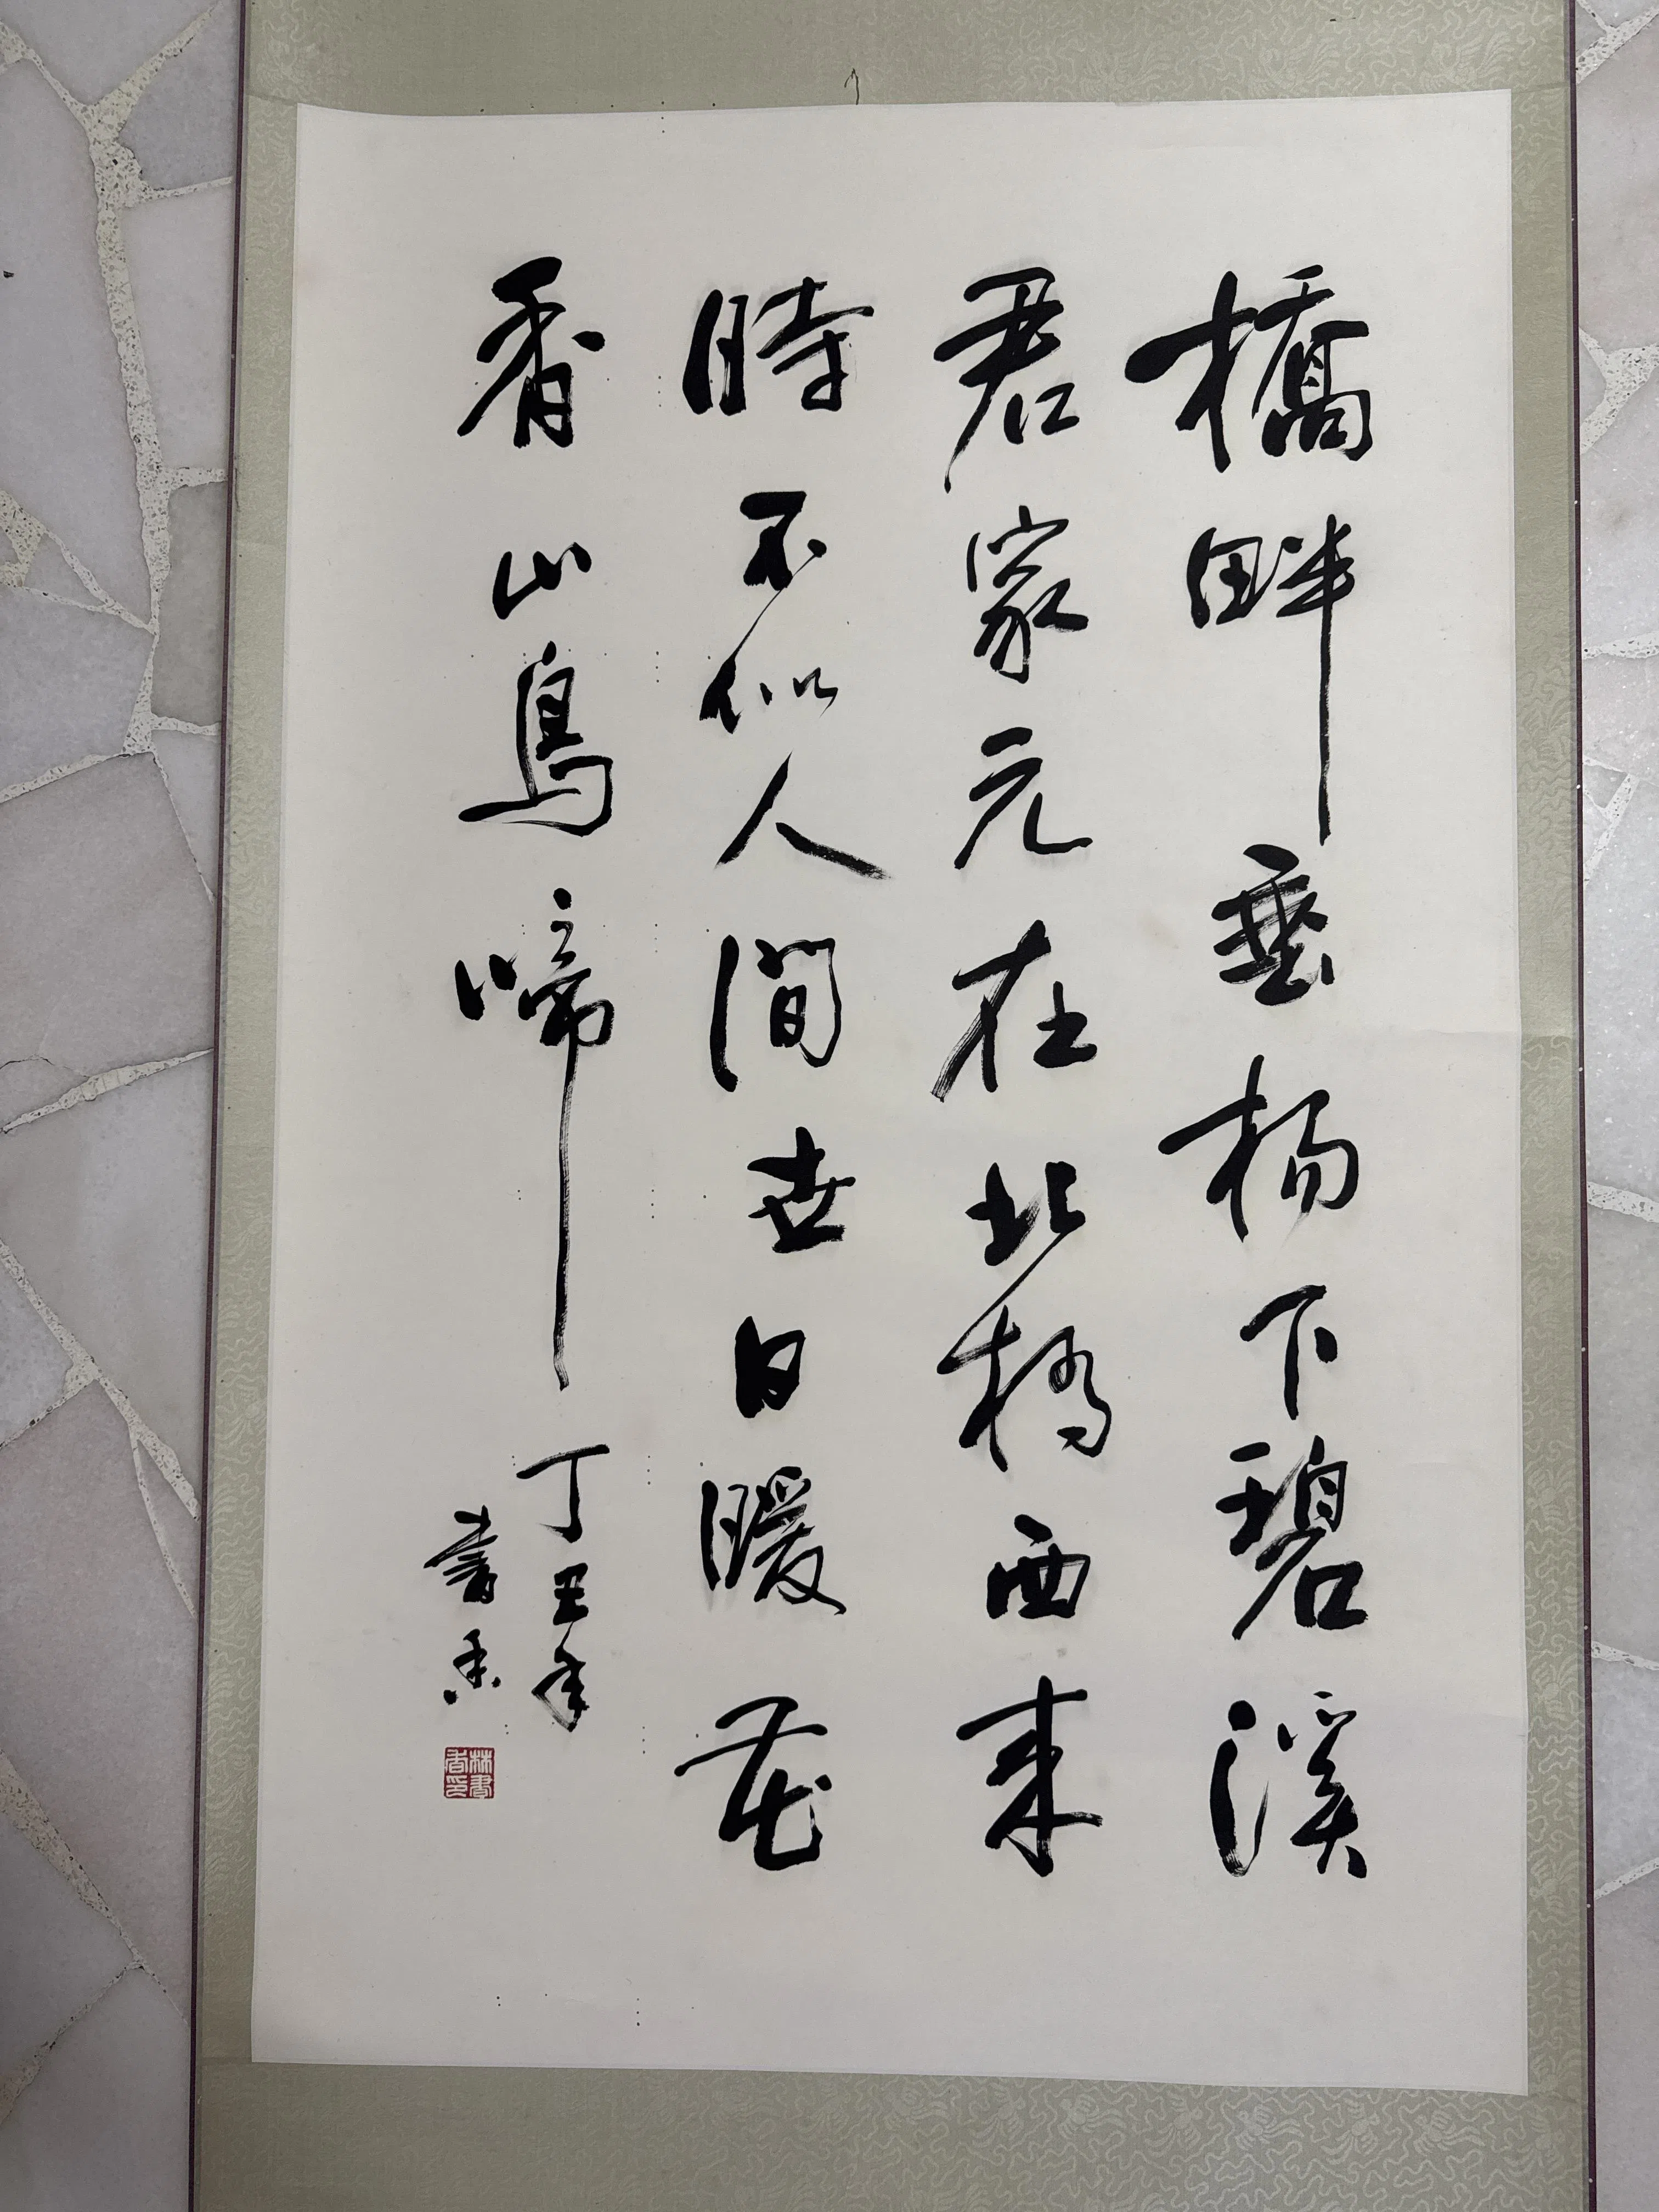 橋畔垂楊下碧溪
君家元在北橋西来
時不似人間世日暖花
香山鳥啼
丁丑年
書香
林書香印